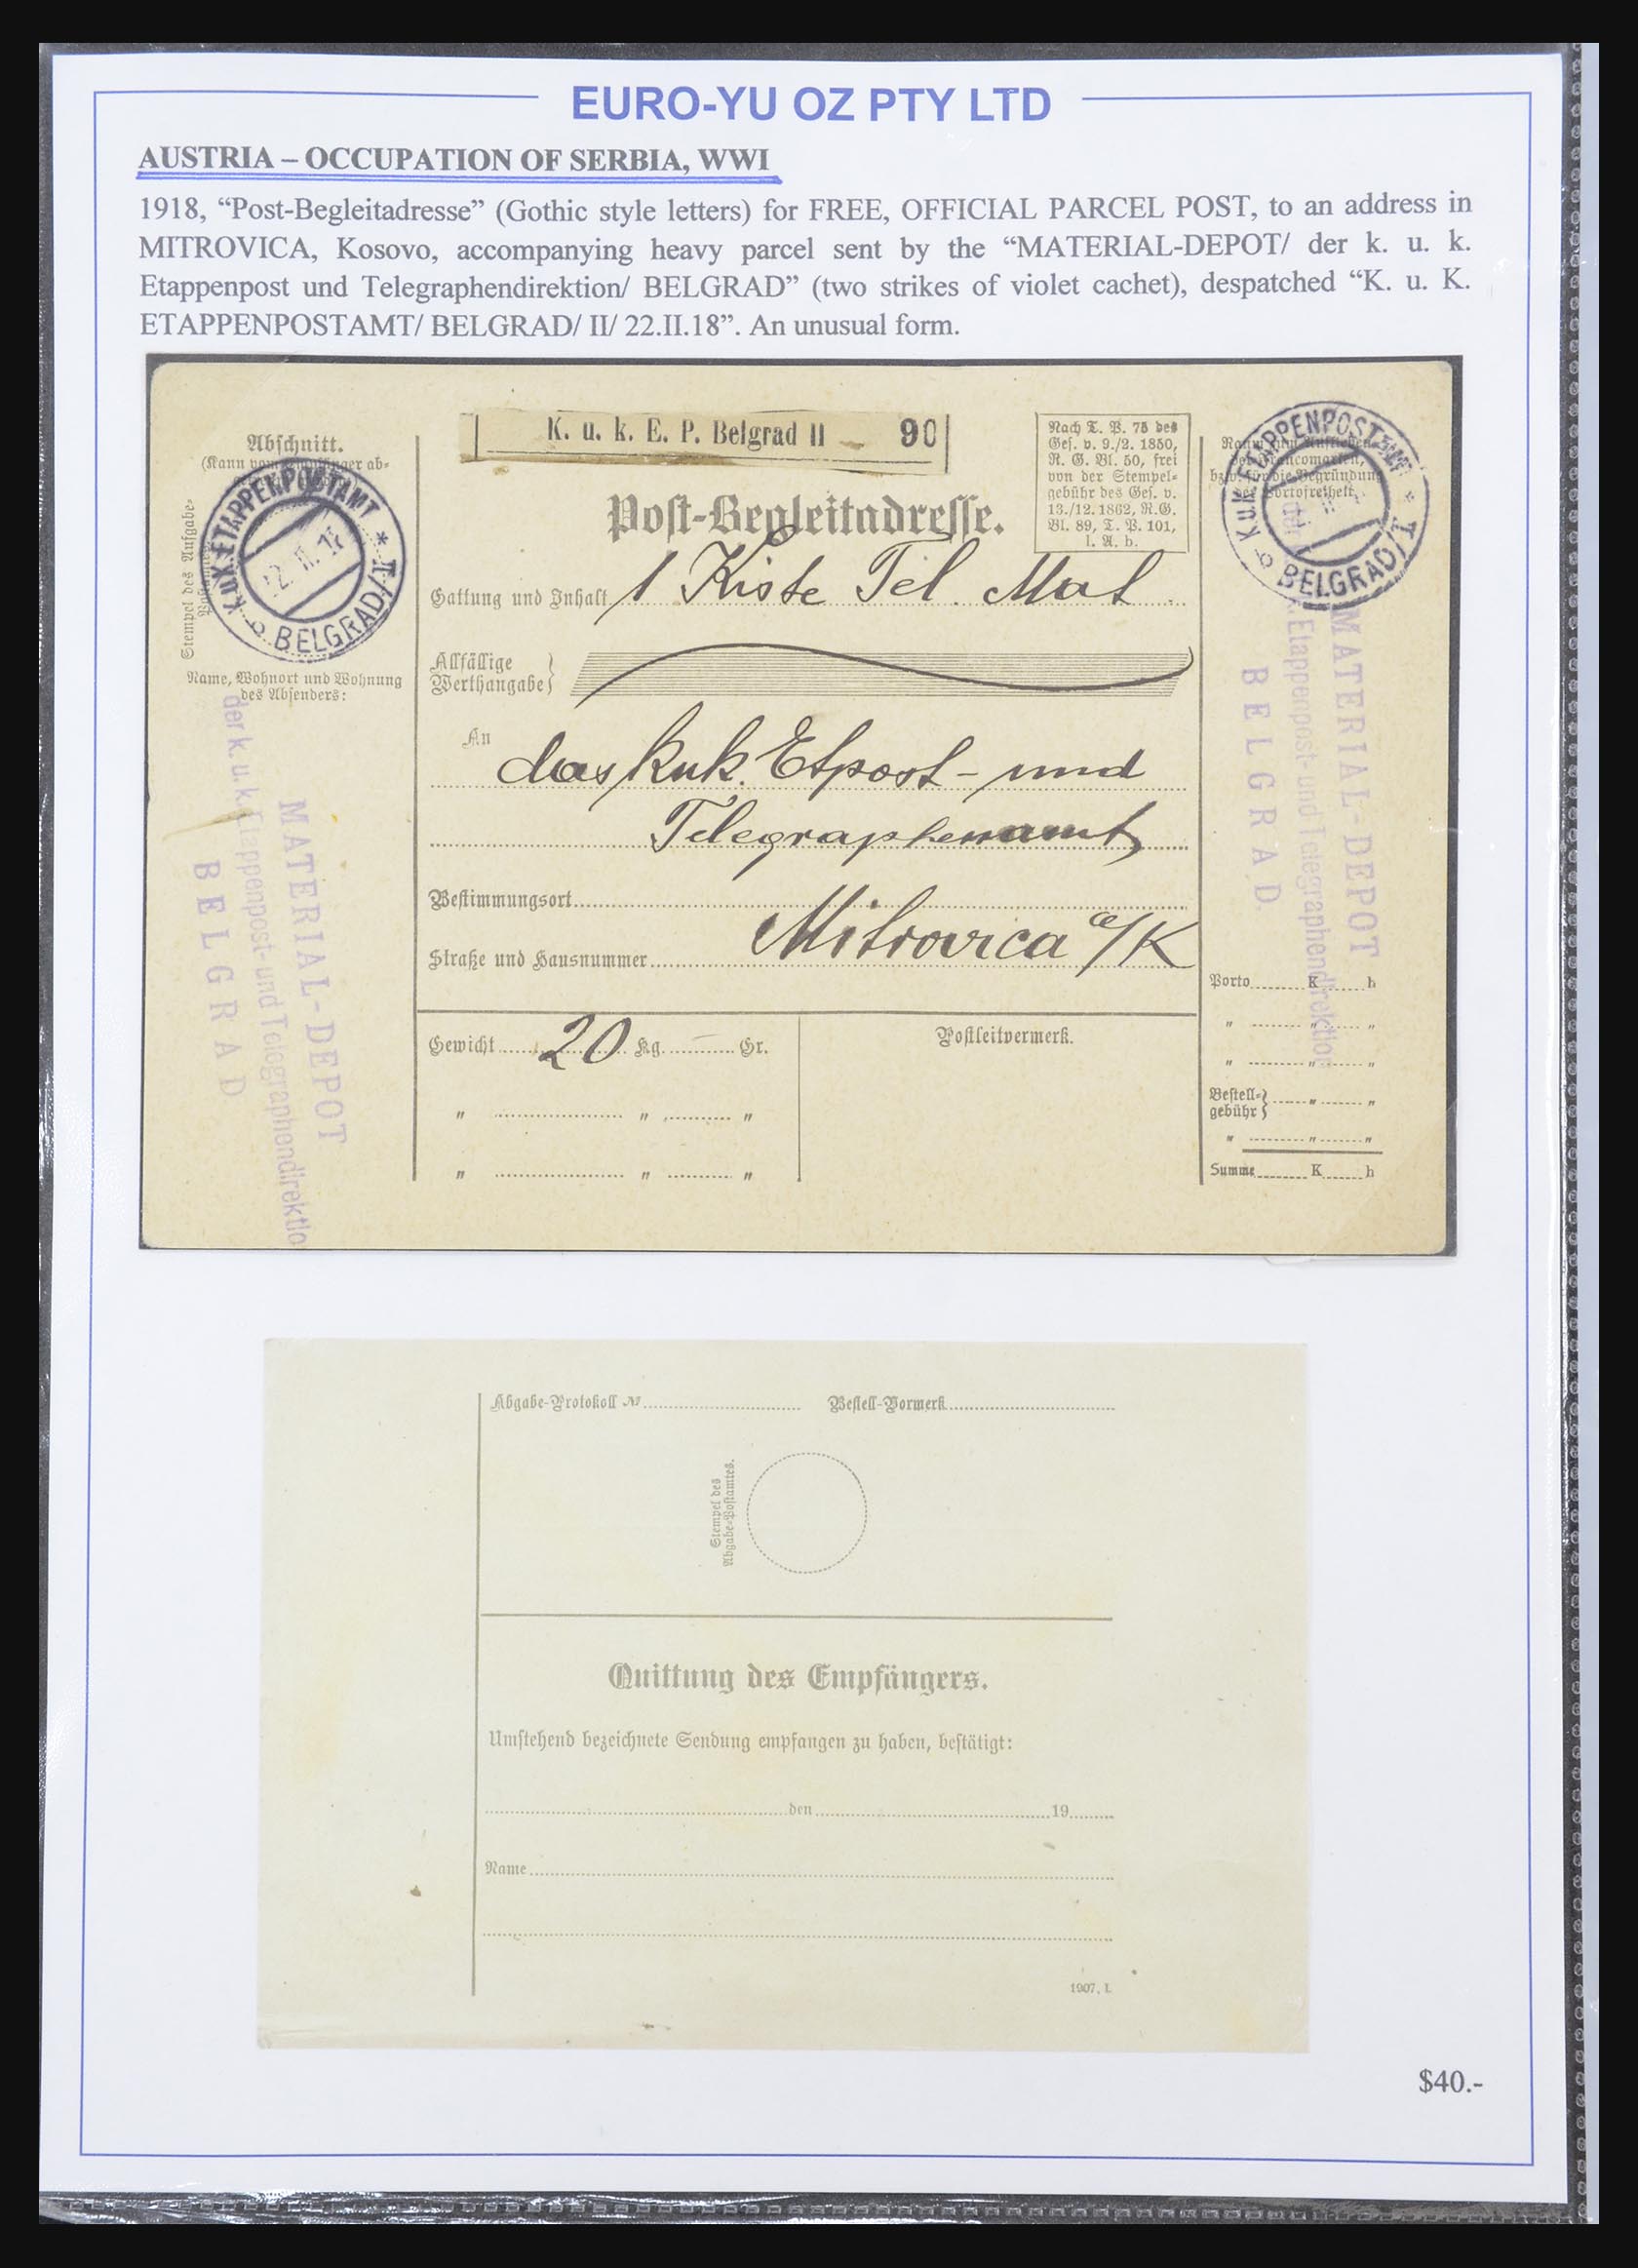 EURO-YU OZ PTY LTD
AUSTRIA – OCCUPATION OF SERBIA, WWI
1918, “Post-Begleitadresse” (Gothic style letters) for FREE, OFFICIAL PARCEL POST, to an address in
MITROVICA, Kosovo, accompanying heavy parcel sent by the “MATERIAL-DEPOT/ der k. u. k.
Etappenpost und Telegraphendirektion/ BELGRAD” (two strikes of violet cachet), despatched “K. u. K.
ETAPPENPOSTAMT/ BELGRAD/ II/ 22.II.18”. An unusual form.
Abschnitt.
(Kann vom Empfänger ab-
Stempel des Aufgabe-
K.u.K. ETAPPENPOSTAMT
BELGRAD/
Name, Wohnort und Wohnung
des Absenders:
MATERIAL-DEPOT
der k. u. k. Etappenpost- und Telegraphendirektio
BELGRAD
K. u. k. E. P. Belgrad II 90
Post-Begleitadresse.
Nach T. P. 75 des
Ges. v. 9./2. 1850,
R. G. Bl. 50, frei
von der Stempel-
gebühr des Ges. v.
13./12. 1862, R.G.
Bl. 89, T. P. 101,
I. A. b.
Gattung und Inhalt 1 Kiste Tel. Mat.
Allfällige
Werthangabe
An das kuk. Etpost- und
Telegraphenamt
Bestimmungsort
Mitrovica a/K
Straße und Hausnummer
Gewicht 20 Kg. Gr.
" " "
" " "
Postleitvermerk.
Raum zum Aufkleben
der Francomarken,
bzw. für die Begründung
der Portofreiheit.
K.u.K. ETAPPENPOSTAMT
BELGRAD/
MATERIAL-DEPOT
Etappenpost- und Telegraphendirektion
BELGRAD.
Porto K h
" " "
" " "
Bestell-
gebühr " "
" " "
Summe K h
Abgabe-Protokoll № Bestell-Vormerk
Stempel des
Abgabe-Postamtes.
Quittung des Empfängers.
Umstehend bezeichnete Sendung empfangen zu haben, bestätigt:
den 19
Name
1907. I.
$40.-